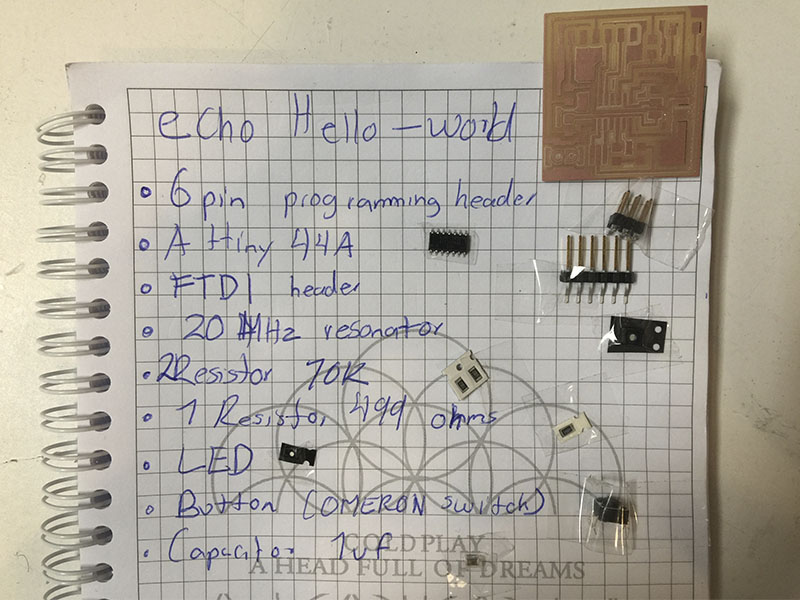 echo Hello-world
• 6 pin programming header
• Attiny 44A
• FTDI header
• 20 MHz resonator
• 2 Resistor 10K
• 1 Resistor 499 ohms
• LED
• Button (OMERON switch)
• Capacitor 1uf
COLDPLAY
A HEAD FULL OF DREAMS